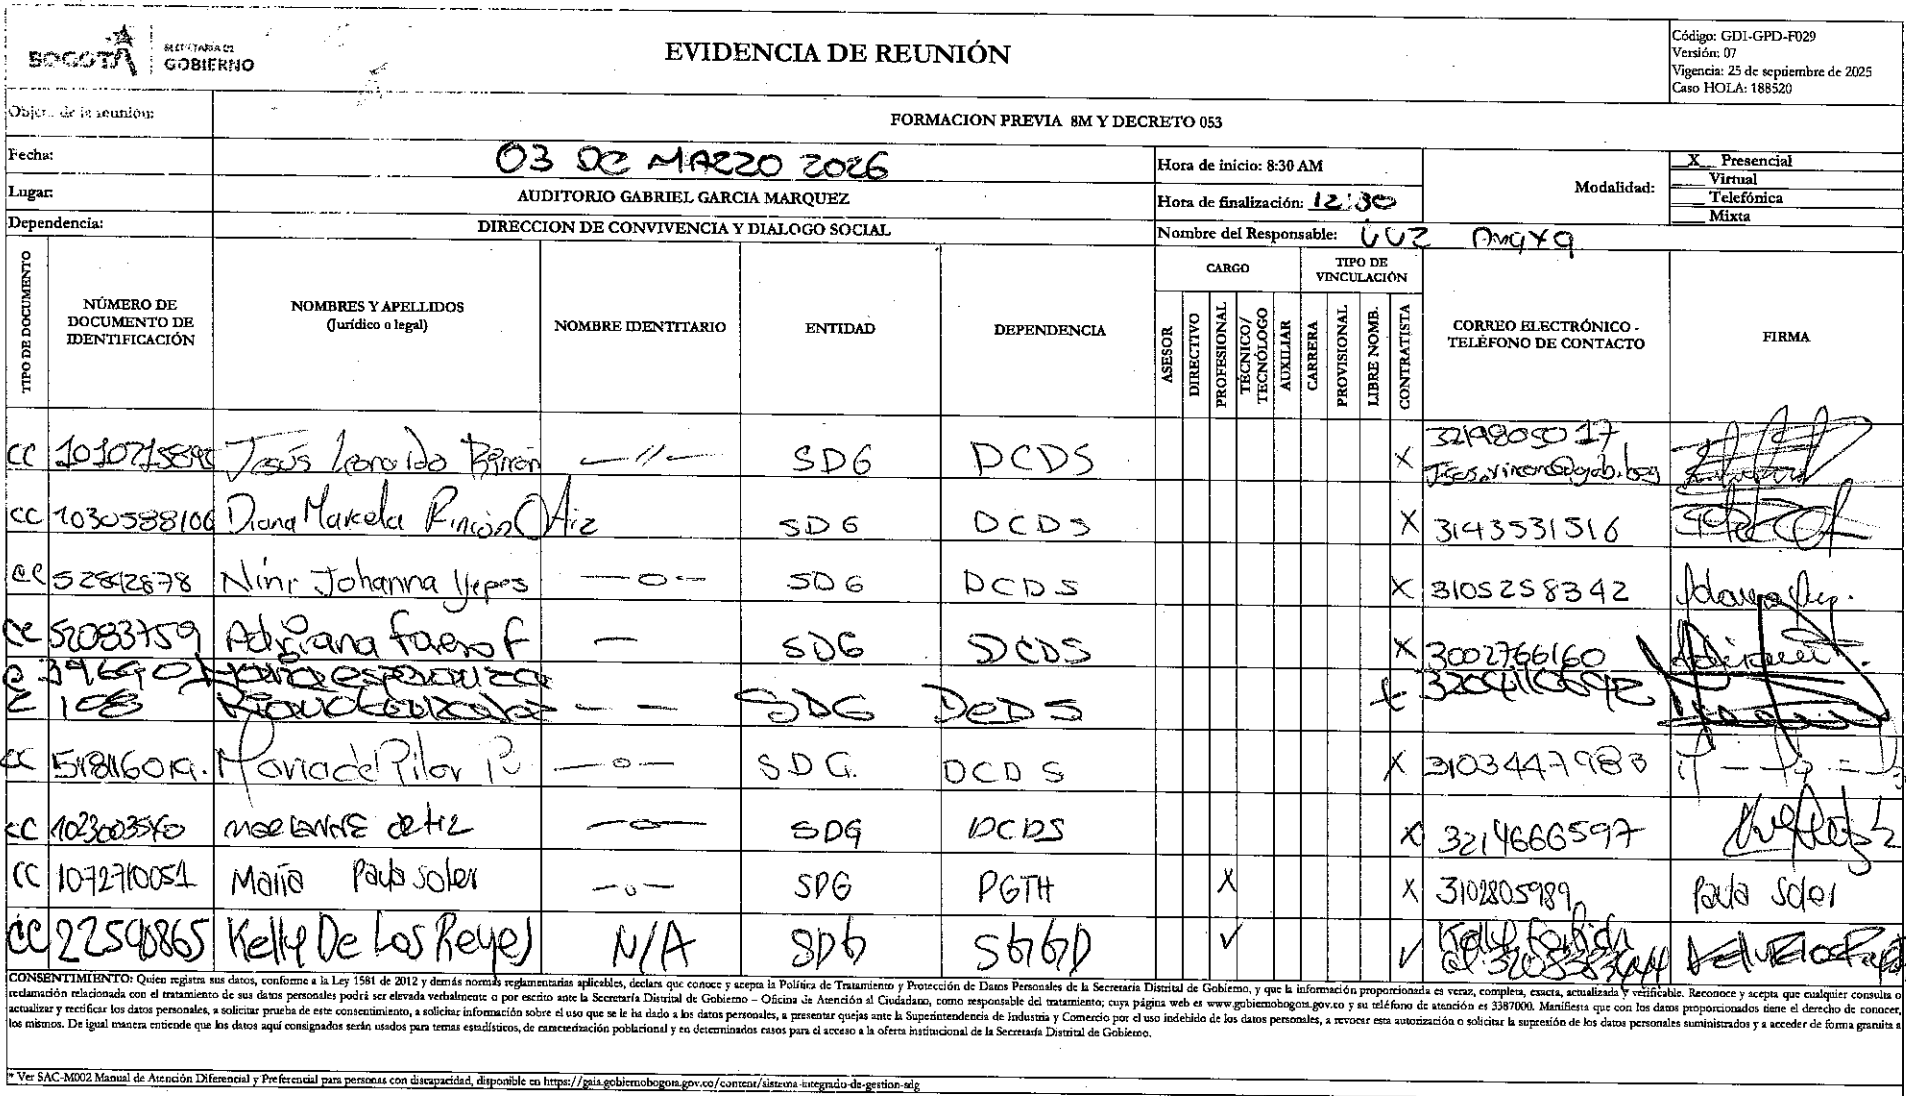 BOGOTÁ
SECRETARÍA DE
GOBIERNO
EVIDENCIA DE REUNIÓN
Código: GDI-GPD-F029
Versión: 07
Vigencia: 25 de septiembre de 2025
Caso HOLA: 188520
Objeto de la reunión:
FORMACION PREVIA 8M Y DECRETO 053
Fecha:
03 DE MARZO 2026
Hora de inicio: 8:30 AM
Modalidad:
X Presencial
Virtual
Telefónica
Mixta
Lugar:
AUDITORIO GABRIEL GARCIA MARQUEZ
Hora de finalización: 12:30
Dependencia:
DIRECCION DE CONVIVENCIA Y DIALOGO SOCIAL
Nombre del Responsable: LUZ
TIPO DE DOCUMENTO
NÚMERO DE DOCUMENTO DE IDENTIFICACIÓN
NOMBRES Y APELLIDOS (Jurídico o legal)
NOMBRE IDENTITARIO
ENTIDAD
DEPENDENCIA
CARGO
ASESOR
DIRECTIVO
PROFESIONAL
TÉCNICO/ TECNÓLOGO
AUXILIAR
TIPO DE VINCULACIÓN
CARRERA
PROVISIONAL
LIBRE NOMB.
CONTRATISTA
CORREO ELECTRÓNICO - TELÉFONO DE CONTACTO
FIRMA
CC Jesús Leonardo Rincón —//— SDG DCDS X 3219805017
CC 1030588106 Diana Marcela Rincón Ortiz SDG DCDS X 3143531516
CC 52842878 Nini Johanna Yepes —o— SDG DCDS X 3105258342
CC 52083759 Adriana F — SDG DCDS X 3002766160
María esperanza — — SDG DCDS X
CC María del Pilar P —o— SDG. DCDS X 3103447983
CC 1023003560 Marianne Ortiz —o— SDG DCDS X 3214666597
CC 1072710051 María Paula Soler —o— SDG DGTH X X 3102805989 Paula Soler
CC 22590865 Kelly De Los Reyes N/A SDG SGGD ✓ ✓
CONSENTIMIENTO: Quien registra sus datos, conforme a la Ley 1581 de 2012 y demás normas reglamentarias aplicables, declara que conoce y acepta la Política de Tratamiento y Protección de Datos Personales de la Secretaría Distrital de Gobierno, y que la información proporcionada es veraz, completa, exacta, actualizada y verificable. Reconoce y acepta que cualquier consulta o
reclamación relacionada con el tratamiento de sus datos personales podrá ser elevada verbalmente o por escrito ante la Secretaría Distrital de Gobierno – Oficina de Atención al Ciudadano, como responsable del tratamiento; cuya página web es www.gobiernobogota.gov.co y su teléfono de atención es 3387000. Manifiesta que con los datos proporcionados tiene el derecho de conocer,
actualizar y rectificar los datos personales, a solicitar prueba de este consentimiento, a solicitar información sobre el uso que se le ha dado a los datos personales, a presentar quejas ante la Superintendencia de Industria y Comercio por el uso indebido de los datos personales, a revocar esta autorización o solicitar la supresión de los datos personales suministrados y a acceder de forma gratuita a
los mismos. De igual manera entiende que los datos aquí consignados serán usados para temas estadísticos, de caracterización poblacional y en determinados casos para el acceso a la oferta institucional de la Secretaría Distrital de Gobierno.
* Ver SAC-M002 Manual de Atención Diferencial y Preferencial para personas con discapacidad, disponible en https://gaia.gobiernobogota.gov.co/content/sistema-integrado-de-gestion-sdg